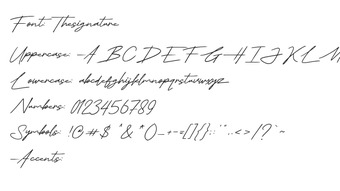 Font: Thesignature
Uppercase: A B C D E F G H I J K L M
Lowercase: abcdefghijklmnopqrstuvwxyz
Numbers: 0123456789
Symbols: !@#$^&*()-+-=[]{}:;'",.<>/?`~
Accents: